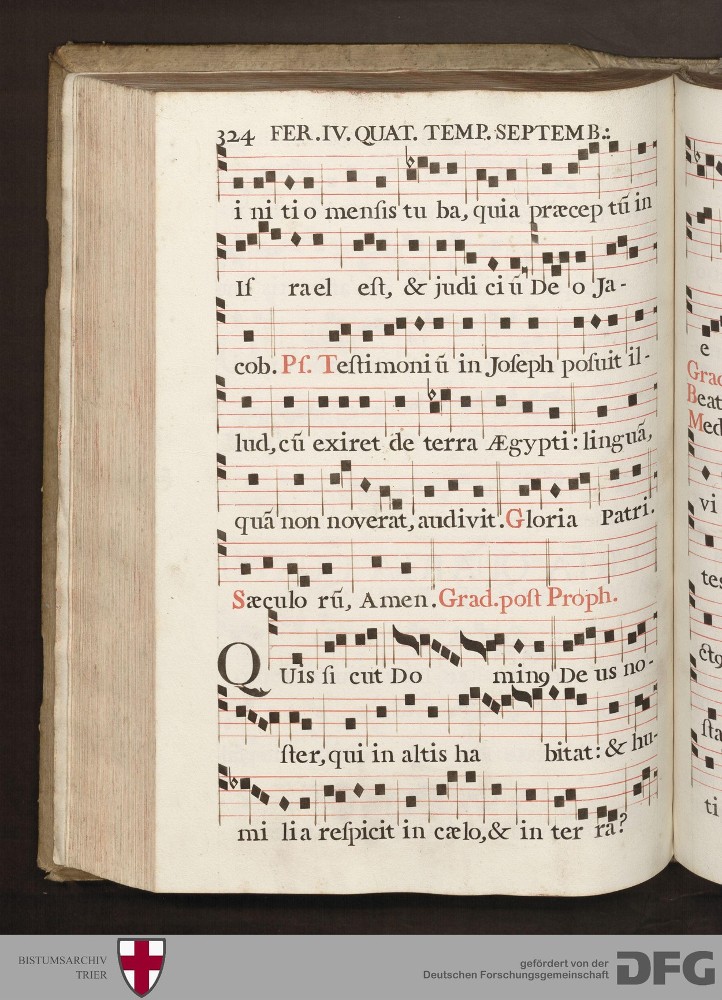 324 FER.IV.QUAT. TEMP. SEPTEMB.:
i ni ti o menſis tu ba, quia præcep tũ in
Iſ rael eſt, & judi ci ũ De o Ja-
cob. Pſ. Teſtimoni ũ in Joſeph poſuit il-
lud, cũ exiret de terra Ægypti: linguã,
quã non noverat, audivit. Gloria Patri.
Sæculo rũ, Amen. Grad. poſt Proph.
QUis ſi cut Do minꝰ De us no-
ſter, qui in altis ha bitat: & hu-
mi lia reſpicit in cælo, & in ter ra?
e
Grad
Beat
Med
vi
tes
ſta
ti
BISTUMSARCHIV
TRIER
gefördert von der
Deutschen Forschungsgemeinschaft
DFG